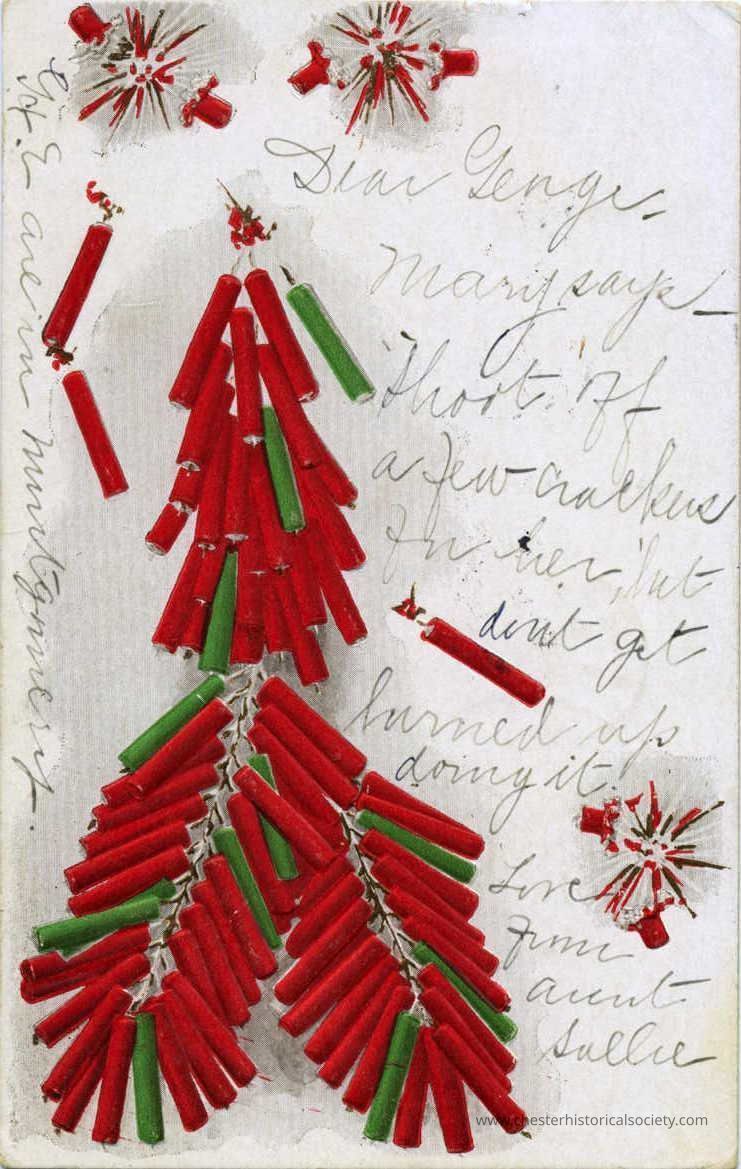 Dear George,
Mary says—
Shoot off
a few crackers
for her, but
dont get
burned up
doing it.
Love
From
aunt
Sallie
G. & E are in Montgomery.
www.chesterhistoricalsociety.com